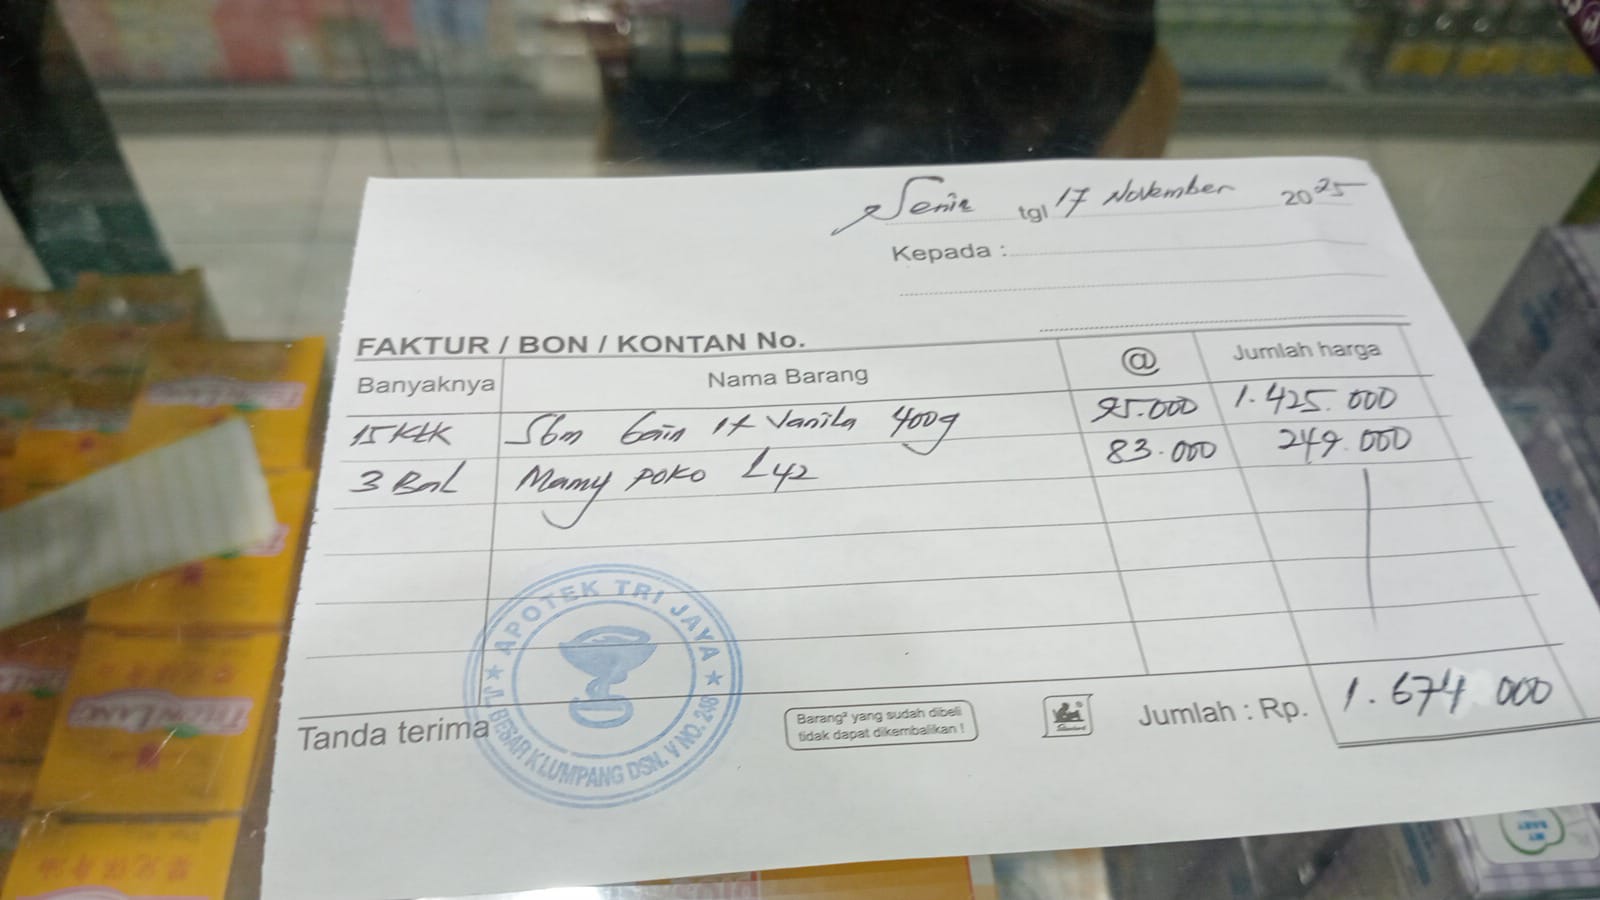 Senin tgl 17 November 2025
Kepada :
FAKTUR / BON / KONTAN No.
Banyaknya Nama Barang @ Jumlah harga
15 KLK Sbm Gain 1+ Vanila 400g 95.000 1.425.000
3 Bal Mamy poko L42 83.000 249.000
APOTEK TRI JAYA
JL. BESAR KLUMPANG DSN. V NO. 248
Tanda terima
Barang² yang sudah dibeli
tidak dapat dikembalikan !
Jumlah : Rp. 1.674.000
MY BABY